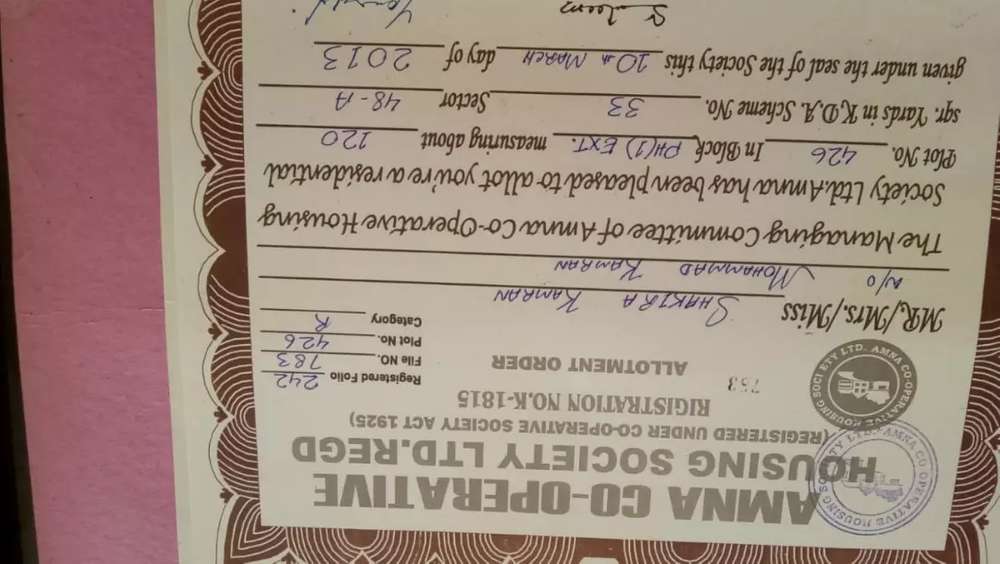 AMNA CO-OPERATIVE
HOUSING SOCIETY LTD.REGD
(REGISTERED UNDER CO-OPERATIVE SOCIETY ACT 1925)
RIGISTRATION NO.K-1815
783
ALLOTMENT ORDER
AMNA CO-OPERATIVE HOUSING SOCIETY LTD.
AMNA CO-OPERATIVE HOUSING SOCIETY LTD.
Registered Folio 242
File NO. 783
Plot No. 426
Category R
MR./Mrs./Miss SHAKIRA KAMRAN
W/O MOHAMMAD KAMRAN
The Managing Committee of Amna Co-Operative Housing
Society Ltd.Amna has been pleased to allot you're a residential
Plot No. 426 In Block PH(1) EXT. measuring about 120
sqr. Yards in K.D.A. Scheme No. 33 Sector 48-A
given under the seal of the Society this 10th MARCH day of 2013